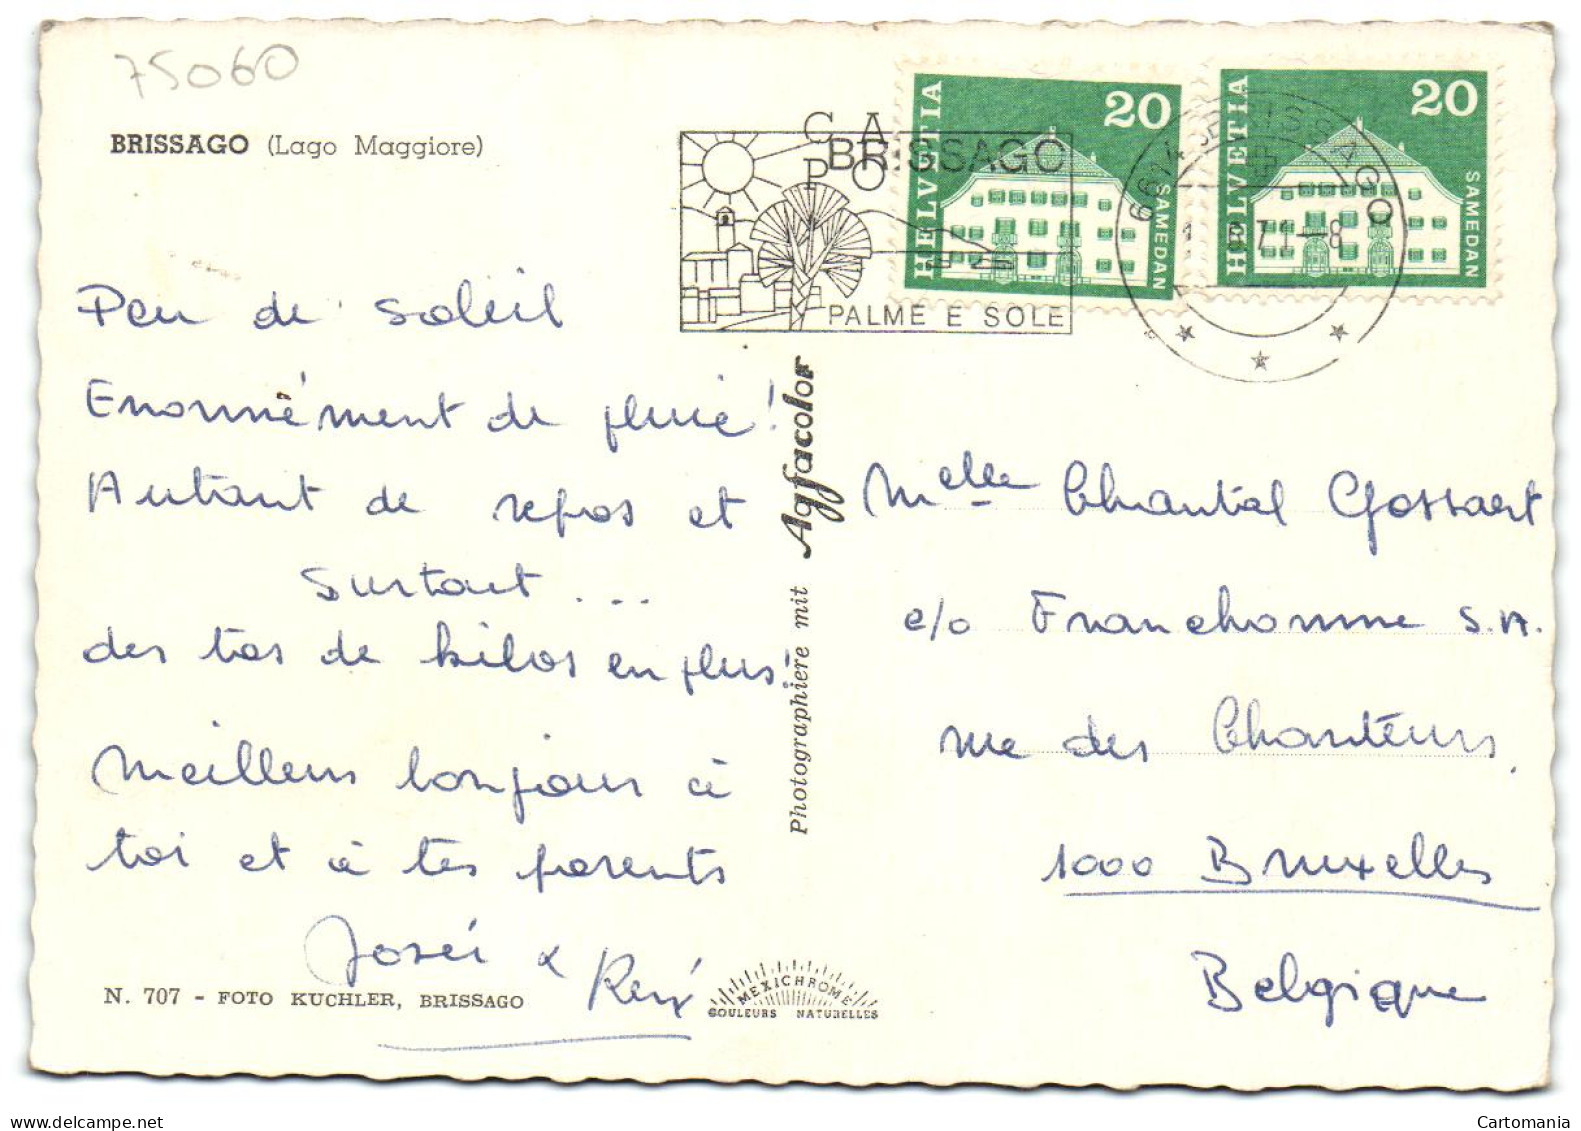 75060
BRISSAGO (Lago Maggiore)
CAPO
BRISSAGO
PALME E SOLE
HELVETIA
20
SAMEDAN
HELVETIA
20
SAMEDAN
6614 BRISSAGO
71-8
Peu de soleil
Enormément de pluie!
Autant de repos et
surtout ...
des tas de kilos en plus!
Meilleurs bonjours à
toi et à tes parents
José &
N. 707 - FOTO KÜCHLER, BRISSAGO
MEXICHROME
COULEURS NATURELLES
Photographiere mit Agfacolor
Melle Chantal Gossaert
c/o Franchomme S.A.
rue des Chanteurs,
1000 Bruxelles
Belgique
www.delcampe.net
Cartomania